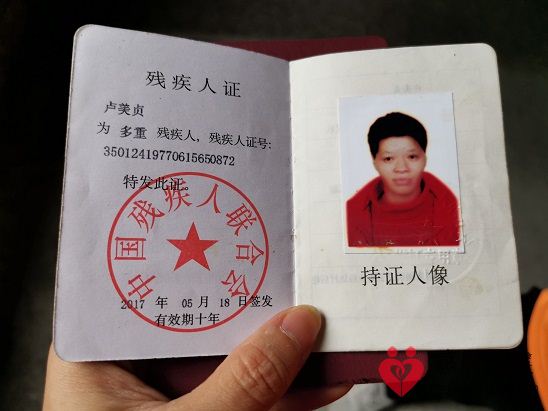 残疾人证
卢美贞
为 多重 残疾人，残疾人证号：
35012419770615650872
特发此证。
中国残疾人联合会
2017 年 05 月 18 日签发
有效期十年
持证人像